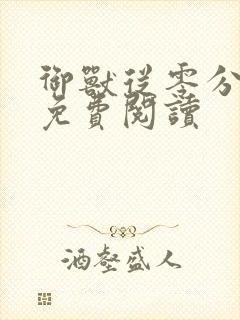 御獸從零分
免費閱讀
酒壑盛人